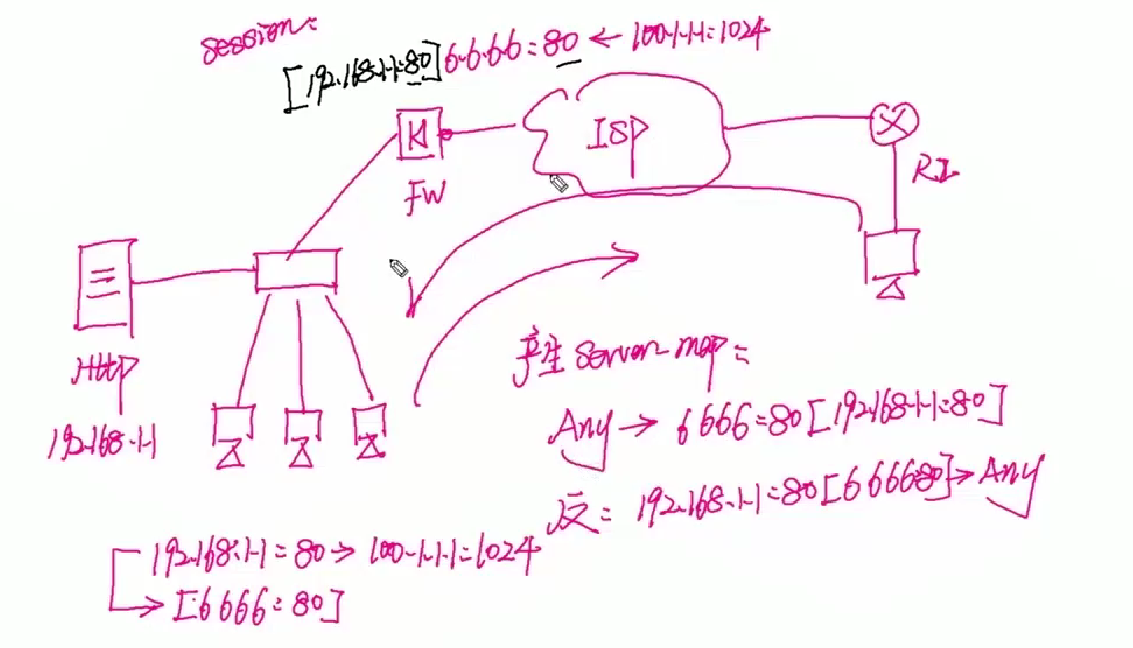 session:
[192.168.1.1:80]6.6.6.6:80 ← 100.1.1.1:1024
ISP
FW
R1
Http
192.168.1.1
产生 server map:
Any → 6666:80[192.168.1.1:80]
反: 192.168.1.1:80[6666:80]→Any
192.168.1.1:80→100.1.1.1:1024
[6666:80]